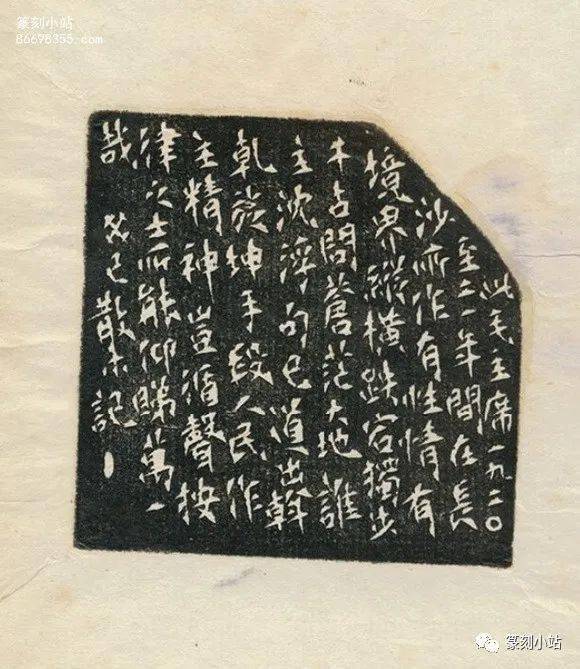 篆刻小站
86678355.com
此毛主席一九二〇
至二一年間在長
沙所作有性情有
境界縱橫跌宕獨步
千古問蒼茫大地誰
主沈浮句已道出斡
乾旋坤手段人民作
主精神豈循聲按
律之士所能仰睇萬一
哉 癸巳散木記
篆刻小站